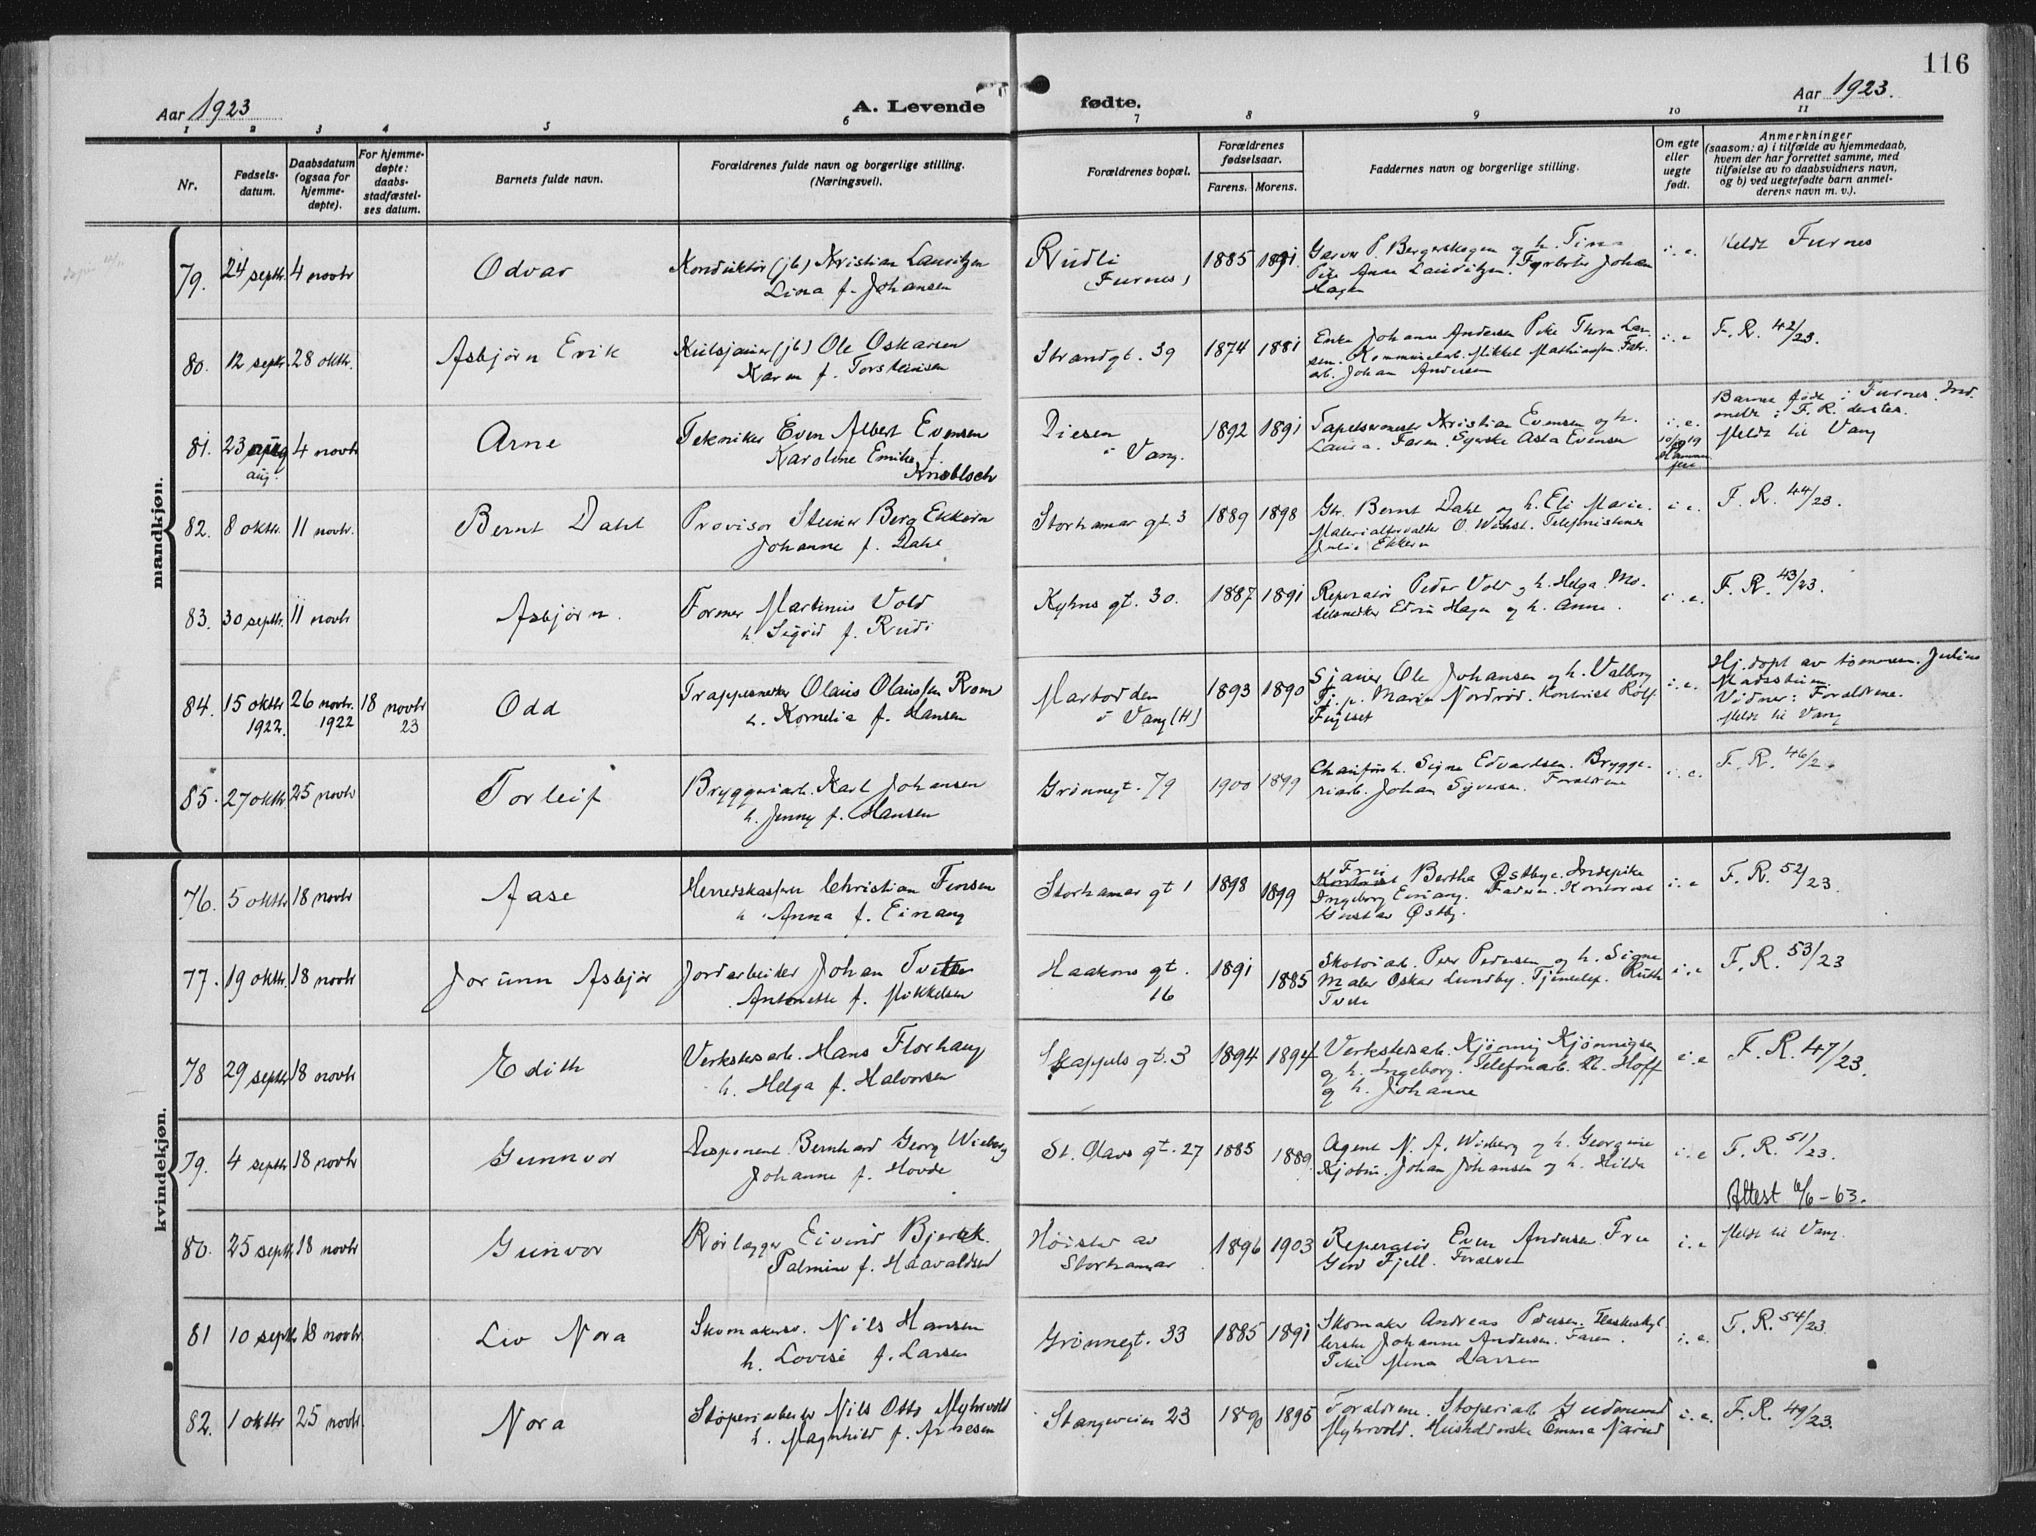 116
Aar 1923
A. Levende
fødte.
Aar 1923.
1 2 3 4 5 6 7 8 9 10 11
Nr.
Fødsels-
datum.
Daabsdatum
(ogsaa for
hjemme-
døpte).
For hjemme-
døpte:
daabs-
stadfæstel-
ses datum.
Barnets fulde navn.
Forældrenes fulde navn og borgerlige stilling.
(Næringsvei).
Forældrenes bopæl.
Forældrenes
fødselsaar.
Farens. Morens.
Faddernes navn og borgerlige stilling.
Om egte
eller
uegte
født.
Anmerkninger
(saasom: a) i tilfælde av hjemmedaab,
hvem der har forrettet samme, med
tilføielse av to daabsvidners navn,
og b) ved uegtefødte barn anmel-
derens navn m. v.).
mandkjøn.
79. 24 septr. 4 novbr Odvar Konduktør (jb) Kristian Lauritzen
Lina f. Johansen
Rudli
(Furnes)
1885 1891 P. Bergerskogen og h. Tina
Pike Anna Lauritzen. Johan
Hagen
i. e. Meldt Furnes
80. 12 septr. 28 oktbr. Asbjørn Erik (jb) Ole Oskarsen
Karen f. Torsteinsen
Strandgt. 39 1874 1881 Enke Johanne Andersen Pike Thora Lar-
sen. Mikkel Mathiassen Fabr.
arb. Johan Andersen
i. e F. R. 42/23.
81. 23 aug 4 novbr Arne Tekniker Even Albert Evensen
aug.
Karoline Emilie f.
Knobloch
Diesen
i Vang.
1892 1891 Kristian Evensen og h.
Laura. Faren. Syerske Asta Evensen
i. e.
Barnet født i Furnes. Ind
meldt i F. R. dersteds.
Meldt til Vang
82. 8 oktbr. 11 novbr. Bernt Dahl Provisor Steiner Berg Ekkern
Johanne f. Dahl
Storhamar gt. 3 1889 1898 Bernt Dahl og h. Eli Marie.
Materialforvalter O. Telefonistinne
Julie Ekkern
i. e. F. R. 44/23.
83. 30 septbr. 11 novbr Asbjørn. Former Martinius Vold
h. Sigrid f. Rudi
Kyhns gt. 30. 1887 1891 Reperatør Peder Vold og h. Helga. Mo-
delsnekker Edvin Hagen og h. Anne.
i. e. F. R. 43/23.
84. 15 oktbr 26 novbr. 18 novbr Odd Trappesnekker Olaus Olaussen Rom
1922. 1922 23
h. Kornelia f. Hansen
Martodden
i Vang (H)
1893 1890 Sjauer Ole Johansen og h. Valborg
Tj. p. Marie Nordrød. Kontorist Rolf
Fuglset
i. e. Hj. døpt av Julius
Madsstuen.
Vidner: Forældrene.
Meldt til Vang
85. 27 oktbr 25 novbr Torleif Bryggeriarb. Karl Johansen
h. Jenny f. Hansen
Grønnegt. 79 1900 1899 Signe Edvardsen. Brygge-
riarb. Johan Syversen. Forældrene
i. e. F. R. 46/2
kvindekjøn.
76. 5 oktbr 18 novbr Aase Herredskasserer Christian Finsen
h. Anna f. Einang
Storhamar gt 1 1898 1899 Fru
Bertha Østbye. Indepike
Ingeborg Einang. Faderen. Kontorist
Gustav Østby.
i. e F. R. 52/23.
77. 19 oktbr. 18 novbr Jorunn Asbjør Jordarbeider Johan Tviten
Antonette f. Mikkelsen
Haakons gt.
16
1891 1885 Skotøiarb. Peder Pedersen og h. Signe
Maler Oskar Lundby. Tjenestep. Ruth
i. e F. R. 53/23
78 29 septbr 18 novbr Edith Verkstedsarb. Hans Florhaug
h. Helga f. Halvorsen
Skappels gt. 3 1894 1894 Verkstedsarb. Kjønnig Kjønnigsen
og h. Ingeborg. Telefonarb. M. Hoff
og h. Johanne
i. e F. R. 47/23.
79. 4 septbr 18 novbr Gunnvor Disponent Bernhard Georg Wiberg
Johanne f. Hovde
St. Olavs gt. 27 1885 1889 Agent N. A. Wiberg og h. Georgine
Kjøbm. Johan Johansen og h. Hilda
i. e F. R. 51/23.
Attest 6/6 - 63.
80. 25 septbr 18 novbr Gunvor Rørlægger Eivind Bjerak.
Palmine f. Haavaldsen
Høisted av
Storhamar
1896 1903 Reperatør Even Andersen Fru
Gerd Fjell. Forældrene
i. e Meldt til Vang
81 10 septbr 18 novbr Liv Nora Skomakersv. Nils Hansen
h. Lovise f. Larsen
Grønnegt. 33 1885 1891 Skomaker Andreas Pedersen. Flaskeskyl-
lerske Johanne Andersen. Faren.
Pike Mina Larsen
i. e. F. R. 54/23.
82. 1 oktbr 25 novbr. Nora Støperiarbeider Nils Otto Myhrvold
h. Magnhild f. Arnesen
Stangeveien 23 1890 1895 Forældrene. Støperiarb. Gudmund
Myhrvold. Husholderske Emma Narud
i. e. F. R. 49/23.